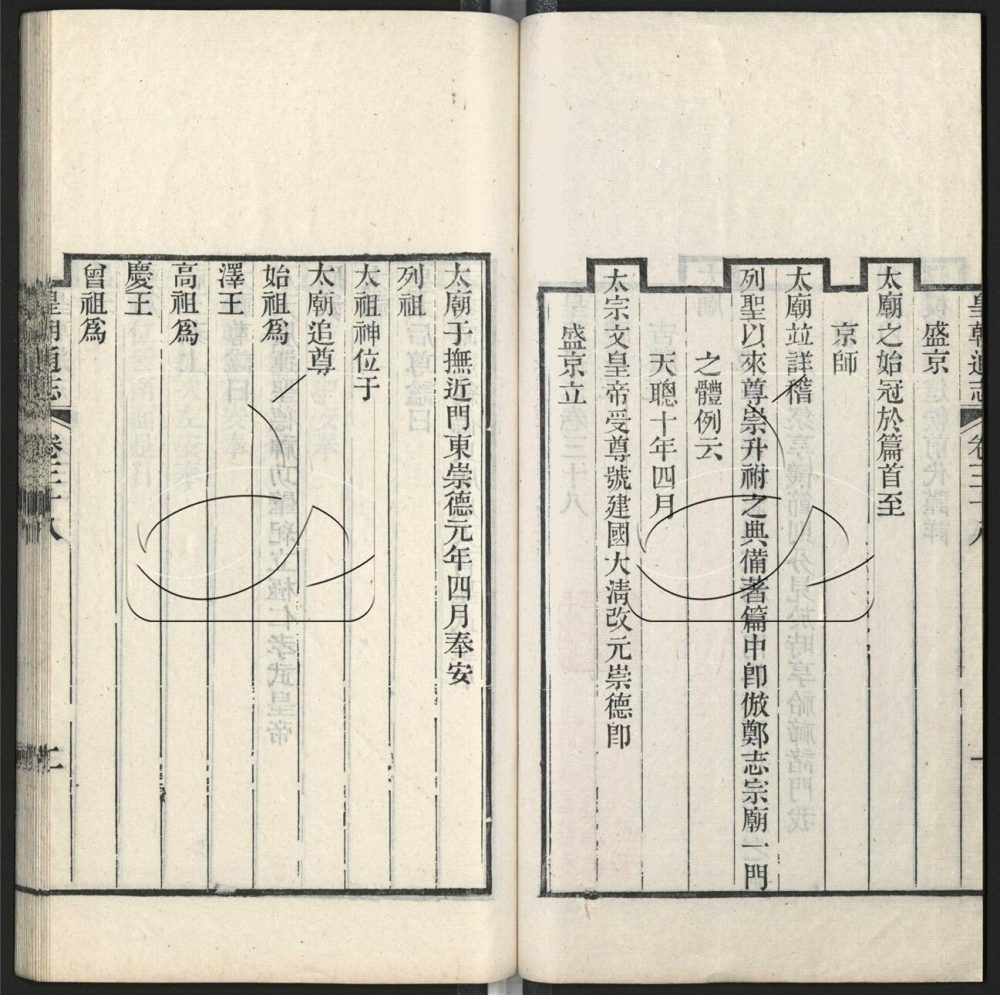 皇朝通志
卷三十八
盛京
太廟之始冠於篇首至
京師
太廟竝詳稽
列聖以來尊崇升祔之典備著篇中卽倣鄭志宗廟一門
之體例云
天聰十年四月
太宗文皇帝受尊號建國大清改元崇德卽
盛京立
太廟于撫近門東崇德元年四月奉安
列祖
太祖神位于
太廟追尊
始祖爲
澤王
高祖爲
慶王
曾祖爲
皇朝通志
卷三十八
二